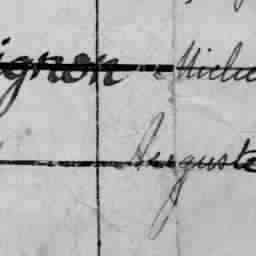 ignon Miche
Auguste